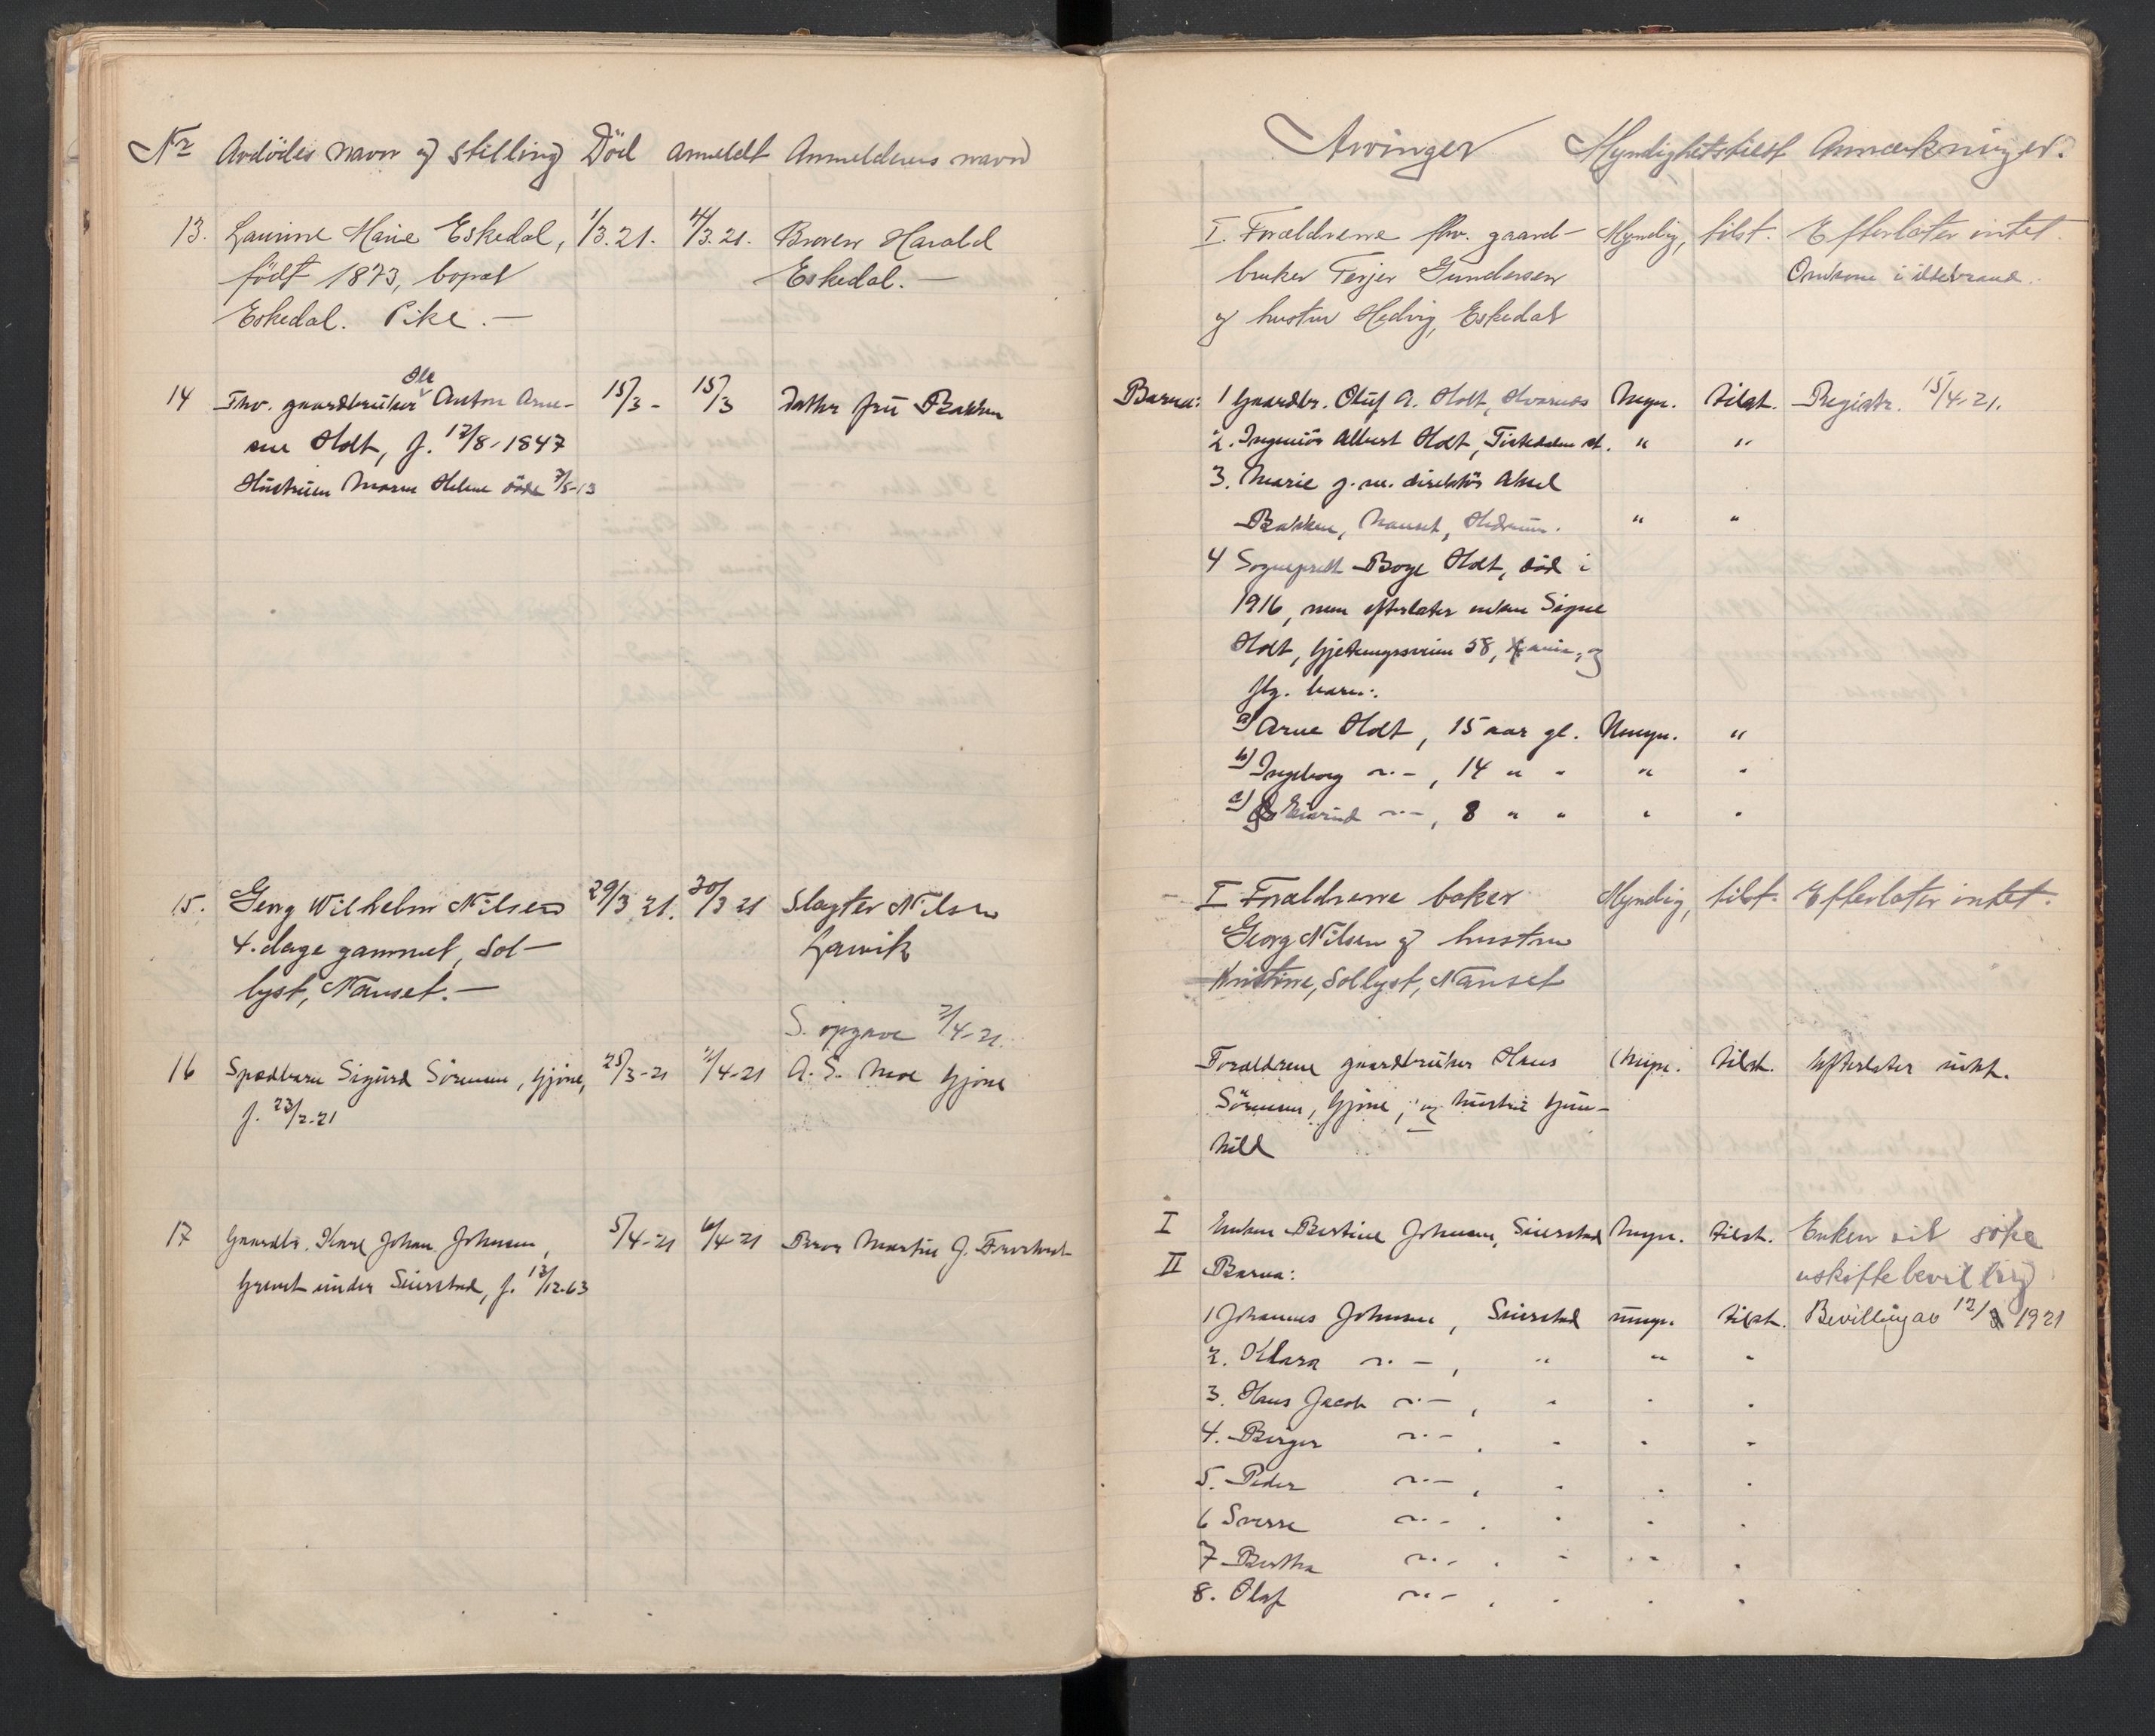 Nr Avdødes navn og stilling Död anmeldt Anmelderens navn
13. Laurine Marie Eskedal, 1/3.21. 4/3.21. Broren Harald
født 1873, bopæl Eskedal. —
Eskedal. Pike. —
14 Fhv. gaardbruker Ole Anton Arne- 15/3 - 15/3 Datter fru Bakken
sen Holt, f. 12/8-1847
Hustruen Maren Helene döde 7/5-13
15. Georg Wilhelm Nilsen 29/3 21. 30/3 21 Slagter Nilsen
4. dage gammel, Sol- Larvik
lyst, Nanset. —
S. opgave 2/4-21.
16 Spædbarn Sigurd Sörensen, Gjöne, 25/3-21 2/4-21 A. S. Moe Gjöne
f. 23/2-21
17 Gaardbr. Karl Johan Johnsen, 5/4-21 6/4-21 Bror Martin J.
under Seierstad, f. 13/12-63
Arvinger Myndighetstilst Anmærkninger.
I. Forældrerne fhv. gaard- Myndig, tilst. Efterlater intet.
bruker Terjer Gundersen Omkom i ildebrand.
og hustru Hedvig, Eskedal
Barna: 1 Gaardbr. Oluf A. Holt, Kvarnes Myn. tilst. Registr. 15/4-21.
2. Ingeniör Albert Holt, st. " "
3. Marie g. m. direktör Aksel
Bakken, Nanset, Hedrum. " "
4 Sogneprest Boye Holt, död i
1916, men efterlater enken Signe
Holt, 58, og
flg. barn:
a) Arne Holt, 15 aar gl. Umyn. "
b) Ingeborg —"—, 14 " " " "
c) Eivind —"—, 8 " " " "
I Forældrerne baker Myndig, tilst. Efterlater intet.
Georg Nilsen og hustru
Kristine, Sollyst, Nanset
Forældrene gaardbruker Hans Myn. tilst. Efterlater intet.
Sörensen, Gjöne, og hustru Gun-
hild
I Enken Bertine Johnsen, Seierstad Myn. tilst. Enken vil söke
II Barna: uskiftebevilling
1 Johannes Johnsen, Seierstad umyn. tilst. Bevilling av 12/ 1921
2. Klara —"—, " " "
3. Hans Jacob —"—, " " "
4. Birger —"—, " " "
5. Peder —"—, " " "
6 Sverre —"—, " " "
7 Bertha —"—, " " "
8. Olaf —"—, " " "